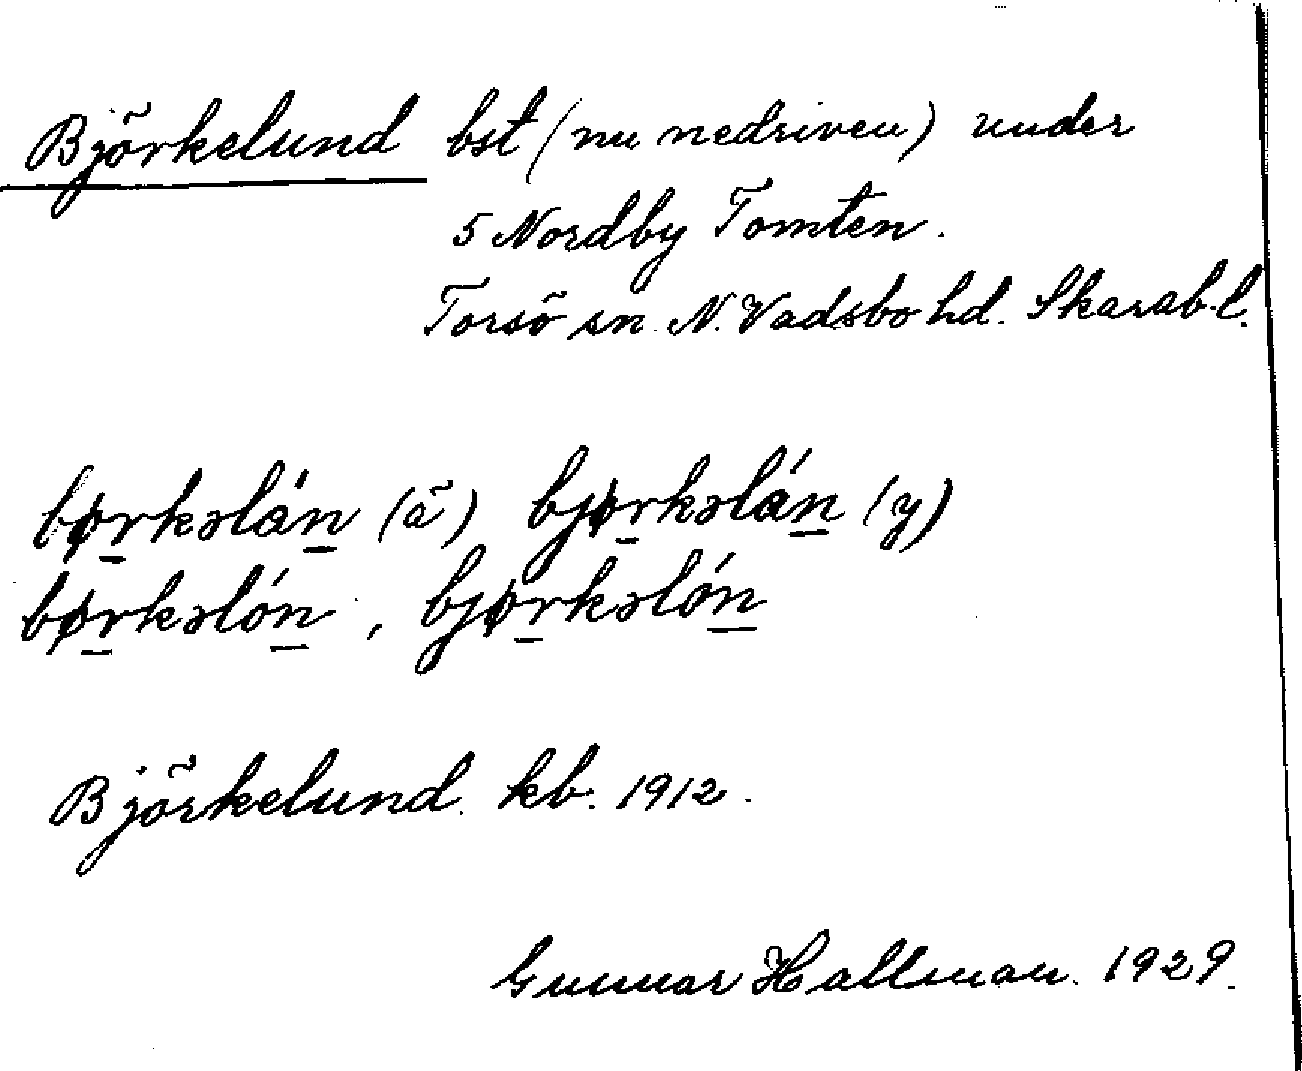 Björkelund bst (nu nedriven) under
5 Nordby Tomten.
Torsö sn. N. Vadsbo hd. Skarab. l.
børkəlán (ä) bjørkəlán (y)
børkəlón, bjørkəlón
Björkelund. kb. 1912.
Gunnar Hallman. 1929.